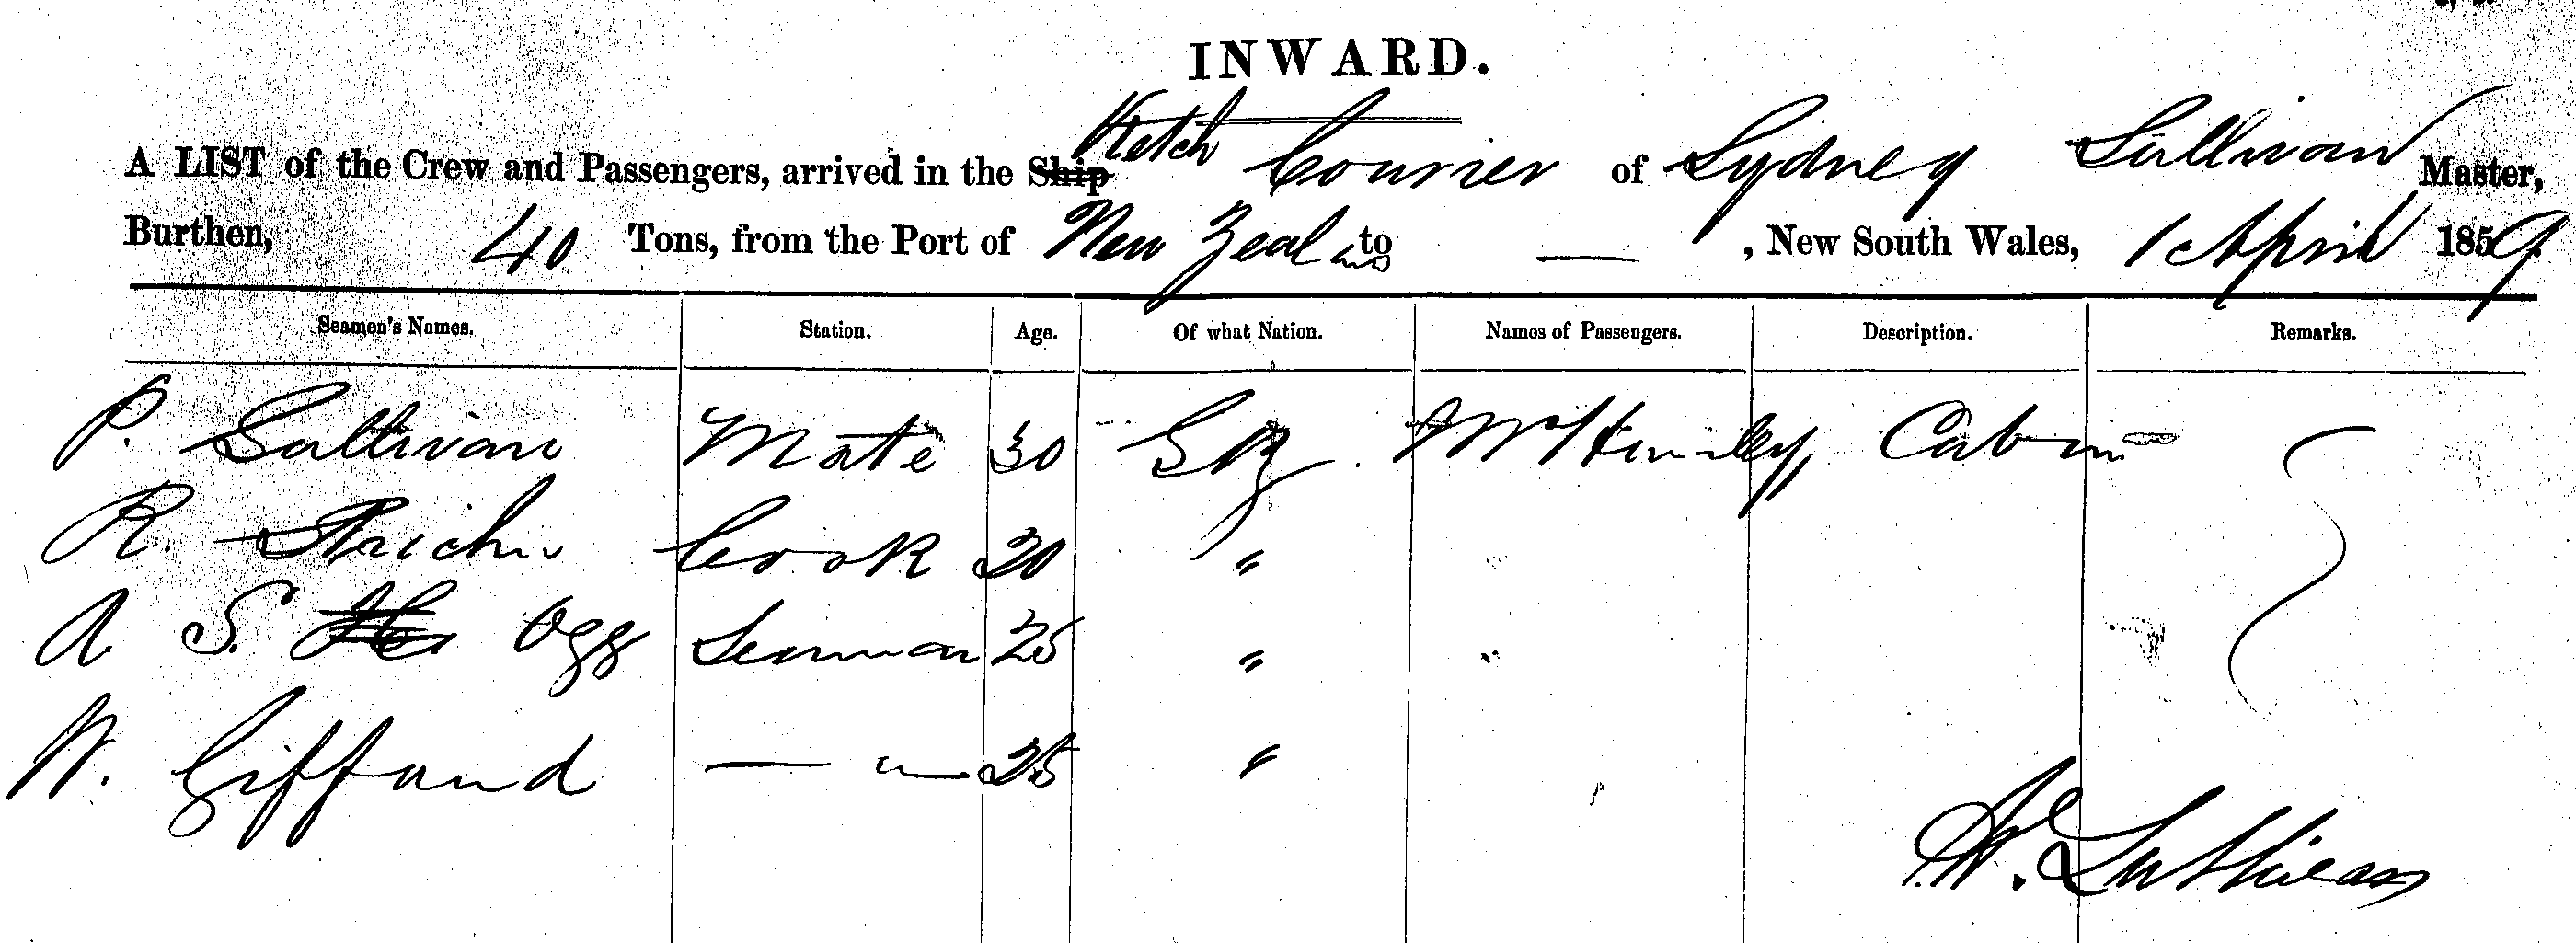 INWARD.
A LIST of the Crew and Passengers, arrived in the Ship Ketch Courier of Sydney Sullivan Master,
Burthen, 40 Tons, from the Port of New Zealand to — , New South Wales, 1 April 1859
Seamen's Names. Station. Age. Of what Nation. Names of Passengers. Description. Remarks.
P. Sullivan Mate 30 GB Cabin
R. Cook 20 "
A. S. Ogg Seaman 25 "
W. Giffand — " 25 "